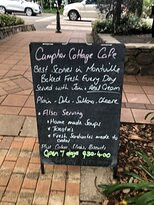 Camphor Cottage Cafe
Best Scones in Montville
Baked Fresh Every Day
Served with Jam & Real Cream
Plain - Date - Sultana, Cheese
* Also Serving
* Home made Soups
* Toasties
* Fresh Sandwiches made to order
Plus Cakes, Slices, Biscuits
Open 7 days 9.30-4.00